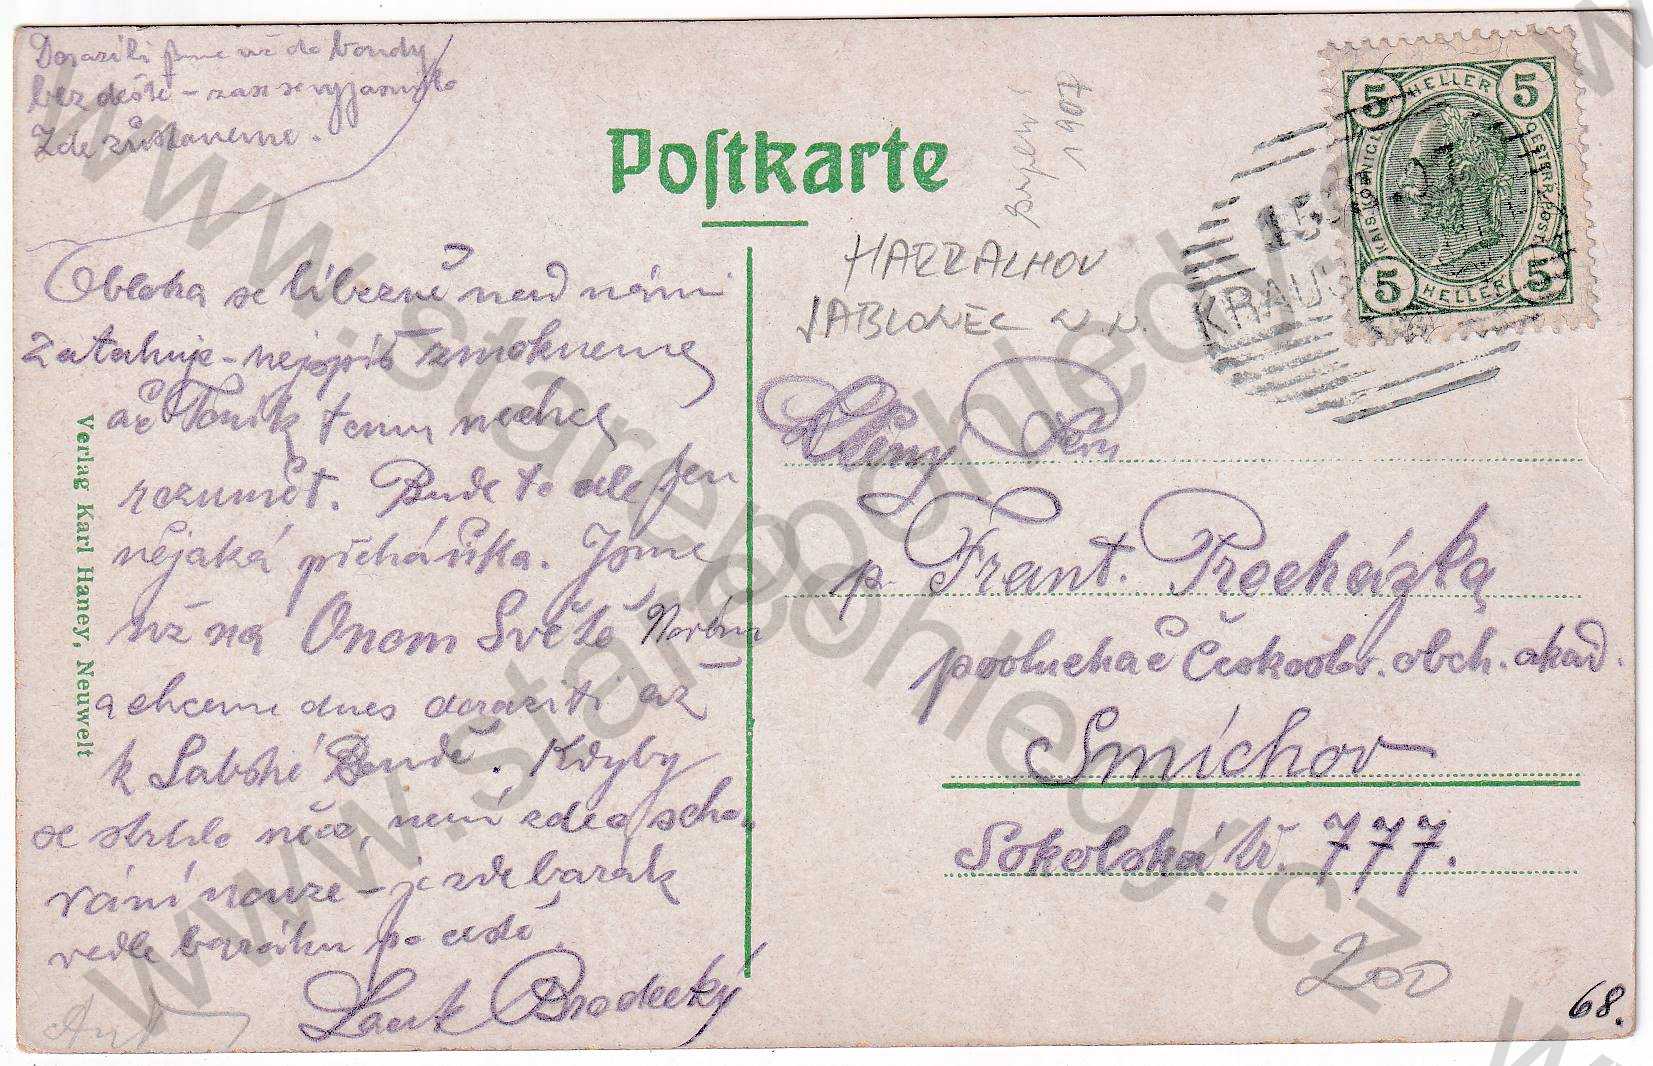 Dorazili jsme už do boudy
bez deště – zase se vyjasnilo
Zde zůstaneme.
Postkarte
1907
HARRACHOV
JABLONEC N. N.
Obloha se líbezně nad námi
zatahuje – nejspíš zmokneme
ač Toník tomu nechce
rozumět. Bude to ale jen
nějaká přeháňka. Jsme
už na Onom Světě
a chceme dnes doraziti až
k Labské Boudě. Kdyby
se strhlo něco, není zde o scho-
vání nouze – je zde barák
vedle baráku po cestě
Brodecký
Verlag Karl Haney, Neuwelt
5 HELLER 5
KAIS. KOENIGL. OESTERR. POST
5 HELLER 5
KRAUS
Ctěný Pan
p. Frant. Procházka
posluchač Českoslov. obch. akad.
Smíchov
Sokolská tř. 777.
200
68.
www.starepohledy.cz
www.starepohledy.cz